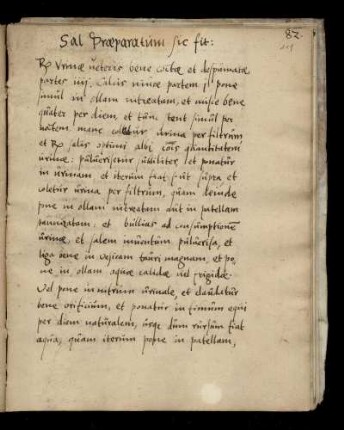 82.
Sal Præparatum sic fit:
℞ Urinæ veteris bene coctæ et despumatæ
partes iiij, Calcis vivæ partem j, pone
simul in ollam vitreatam, et misce bene
quater per diem, et tūc. stent simul per
noctem, mane coletur urina per filtrum
et ℞ salis optimi albi, eōis quantitatem
urinæ: pulverisetur subtiliter, et ponatur
in urinam et iterum fiat sicut supra et
coletur urina per filtrum, quam deinde
pone in ollam vitreatam aut in patellam
et bulliat ad consumptionē
urinæ, et salem inventum pulverisa, et
liga bene in vesicam tauri magnam, et po,
ne in ollam aquæ calidæ vel frigidæ.
Vel pone in vitrum urinale, et claudatur
bene orificium, et ponatur in fimum equi
per diem naturalem, usque dum rursum fiat
aqua, quam iterum pone in patellam,